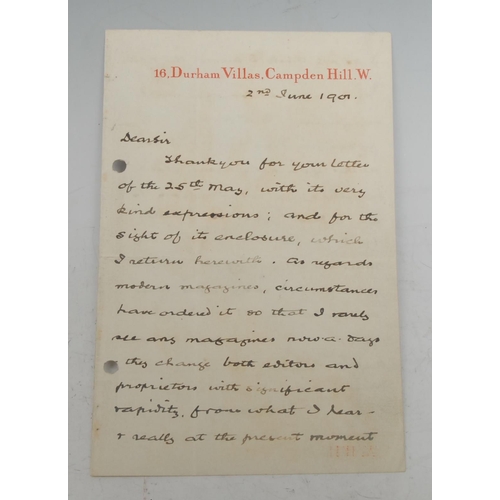 16, Durham Villas, Campden Hill. W.
2nd June 1901.
Dear Sir
Thank you for your letter
of the 25th May, with its very
kind expressions; and for the
sight of its enclosure, which
I return herewith. As regards
modern magazines, circumstances
have ordered it so that I rarely
see any magazines now-a-days
& they change both editors and
proprietors with significant
rapidity, from what I hear –
& really at the present moment